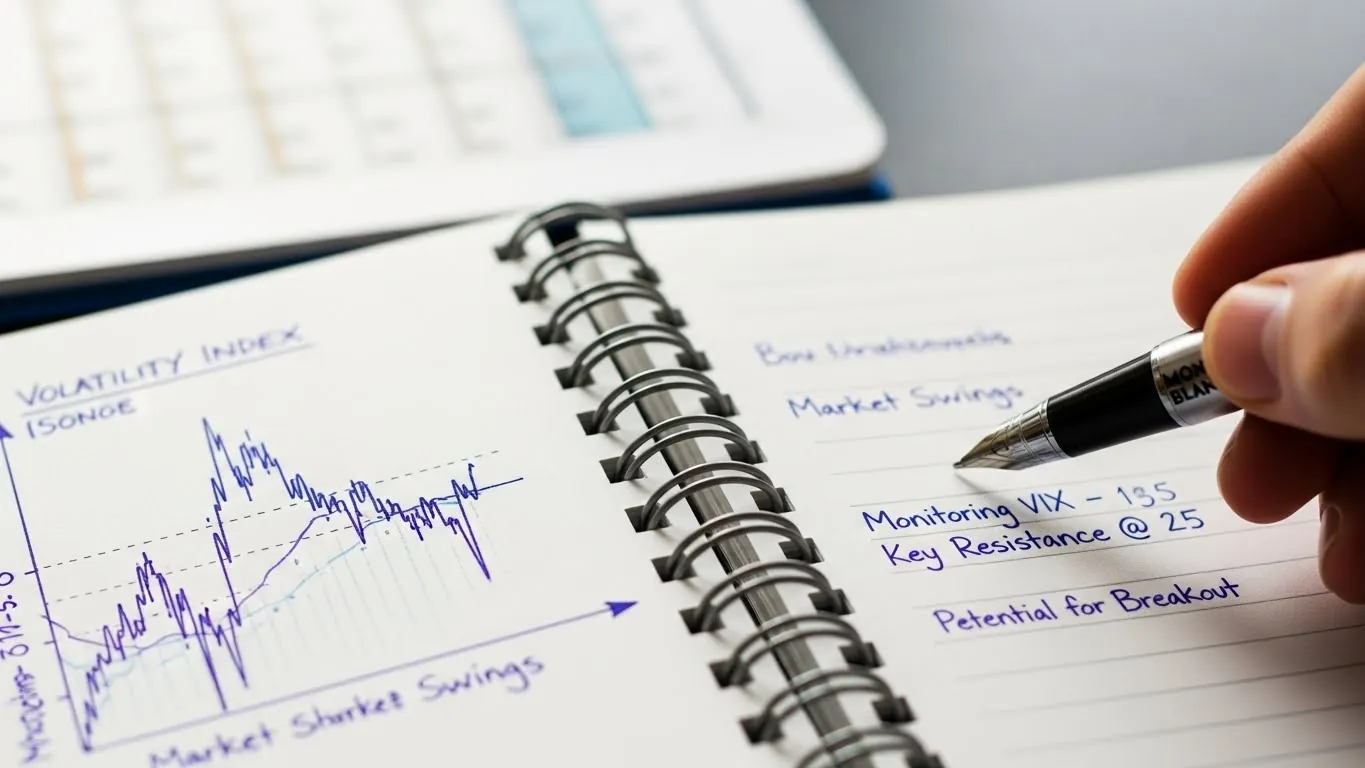 VOLATILITY INDEX
ISONOE
Market Sharkes Swings
Market Swings
Monitoring VIX – 135
Key Resistance @ 25
Potential for Breakout
MON
BLAN